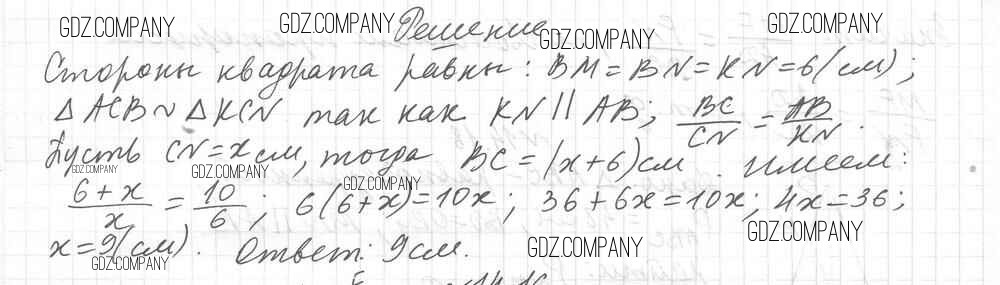 GDZ.COMPANY GDZ.COMPANY Решение GDZ.COMPANY GDZ.COMPANY
Стороны квадрата равны: BM = BN = KN = 6 (см);
△ ACB ~ △ KCN так как KN || AB; BC/CN = AB/KN.
Пусть CN = x см, тогда BC = (x+6) см имеем:
GDZ.COMPANY GDZ.COMPANY GDZ.COMPANY
6+x/x = 10/6; 6(6+x) = 10x; 36+6x = 10x; 4x = 36;
x = 9 (см). Ответ: 9 см.
GDZ.COMPANY GDZ.COMPANY GDZ.COMPANY